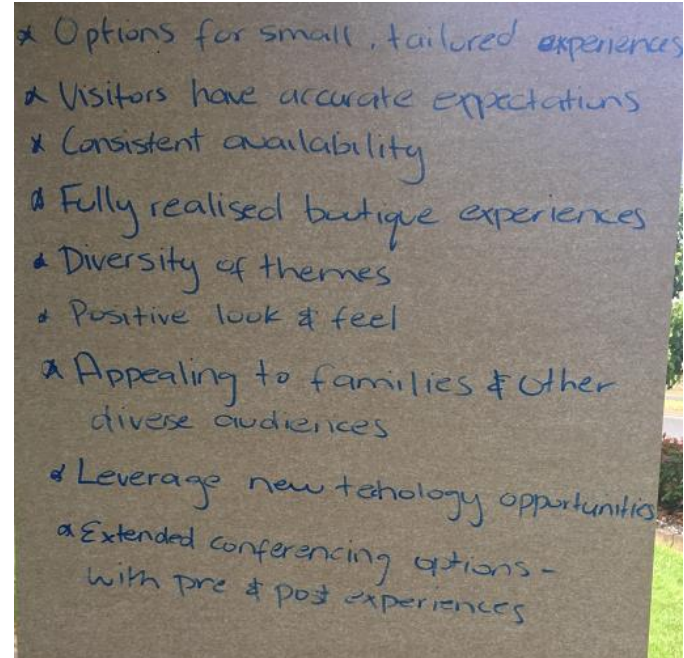 * Options for small, tailored experiences
* Visitors have accurate expectations
* Consistent availability
* Fully realised boutique experiences
* Diversity of themes
* Positive look & feel
* Appealing to families & other
diverse audiences
* Leverage new tehology opportunities
* Extended conferencing options -
with pre & post experiences